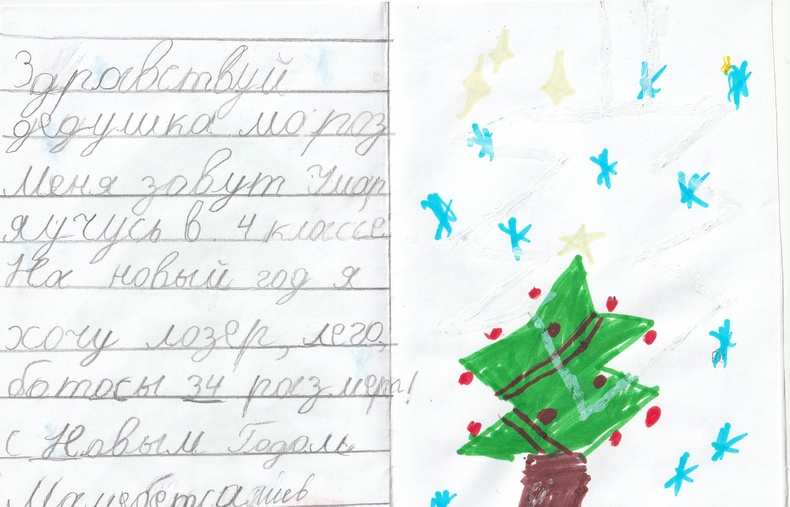 Здравствуй
дедушка мороз
Меня завут Умар
я учусь в 4 классе
На новый год я
хочу лазер, лего,
ботосы 34 размера!
с Новым Годом